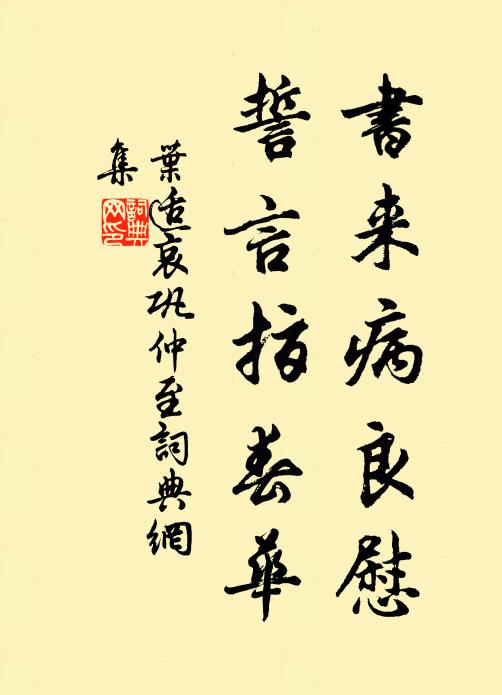 書来病良慰
誓言指春華
葉适哀巩仲至詞典網
集
詞典網印